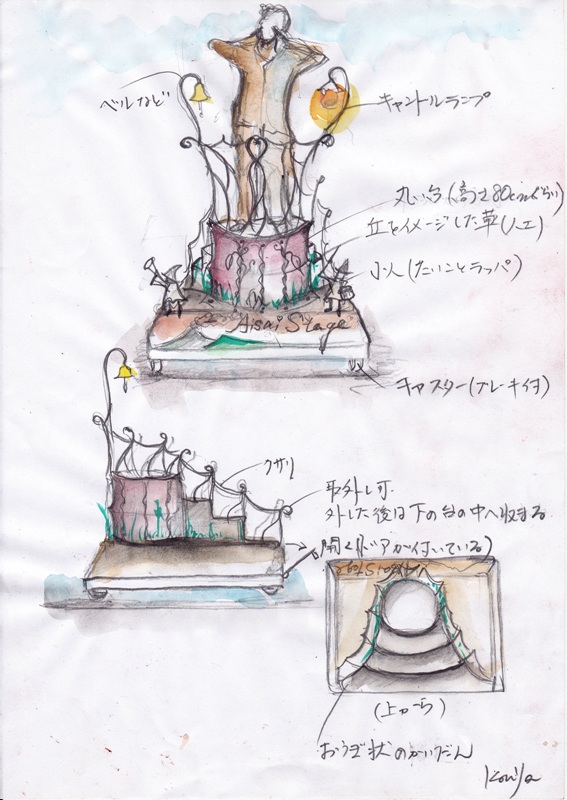 ベルなど
キャンドルランプ
丸い台(高さ80cmぐらい)
丘をイメージした草(人工)
小人(たいことラッパ)
Aisai Stage
キャスター(ブレーキ付)
クサリ
取外し可
外した後は下の台の中へ収まる
開く(ドアが付いている)
Aisai Stage
(上から)
おうぎ状のかいだん